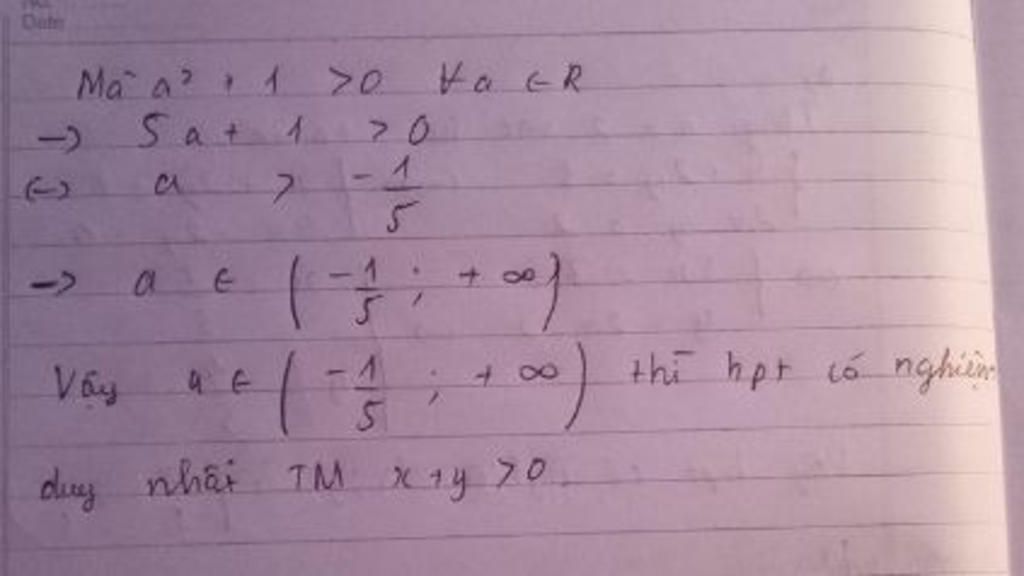 No.
Date
Mà a² + 1 > 0 ∀a ∈ R
→ 5a + 1 > 0
↔ a > -1/5
→ a ∈ (-1/5 ; + ∞)
Vậy a ∈ (-1/5 ; + ∞) thì hpt có nghiệm
duy nhất TM x+y > 0